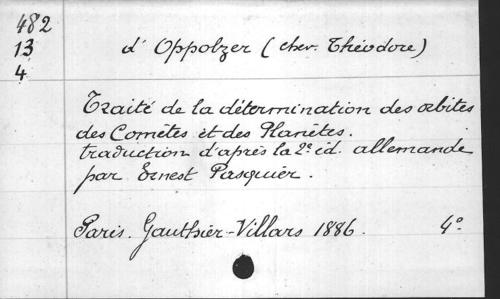 482
13
4
d'Oppolzer (chev. Théodore)
Traité de la détermination des orbites
des Comètes et des Planètes.
traduction d'après la 2e éd. allemande
par Ernest Pasquier.
Paris. Gauthier-Villars 1886. 4°